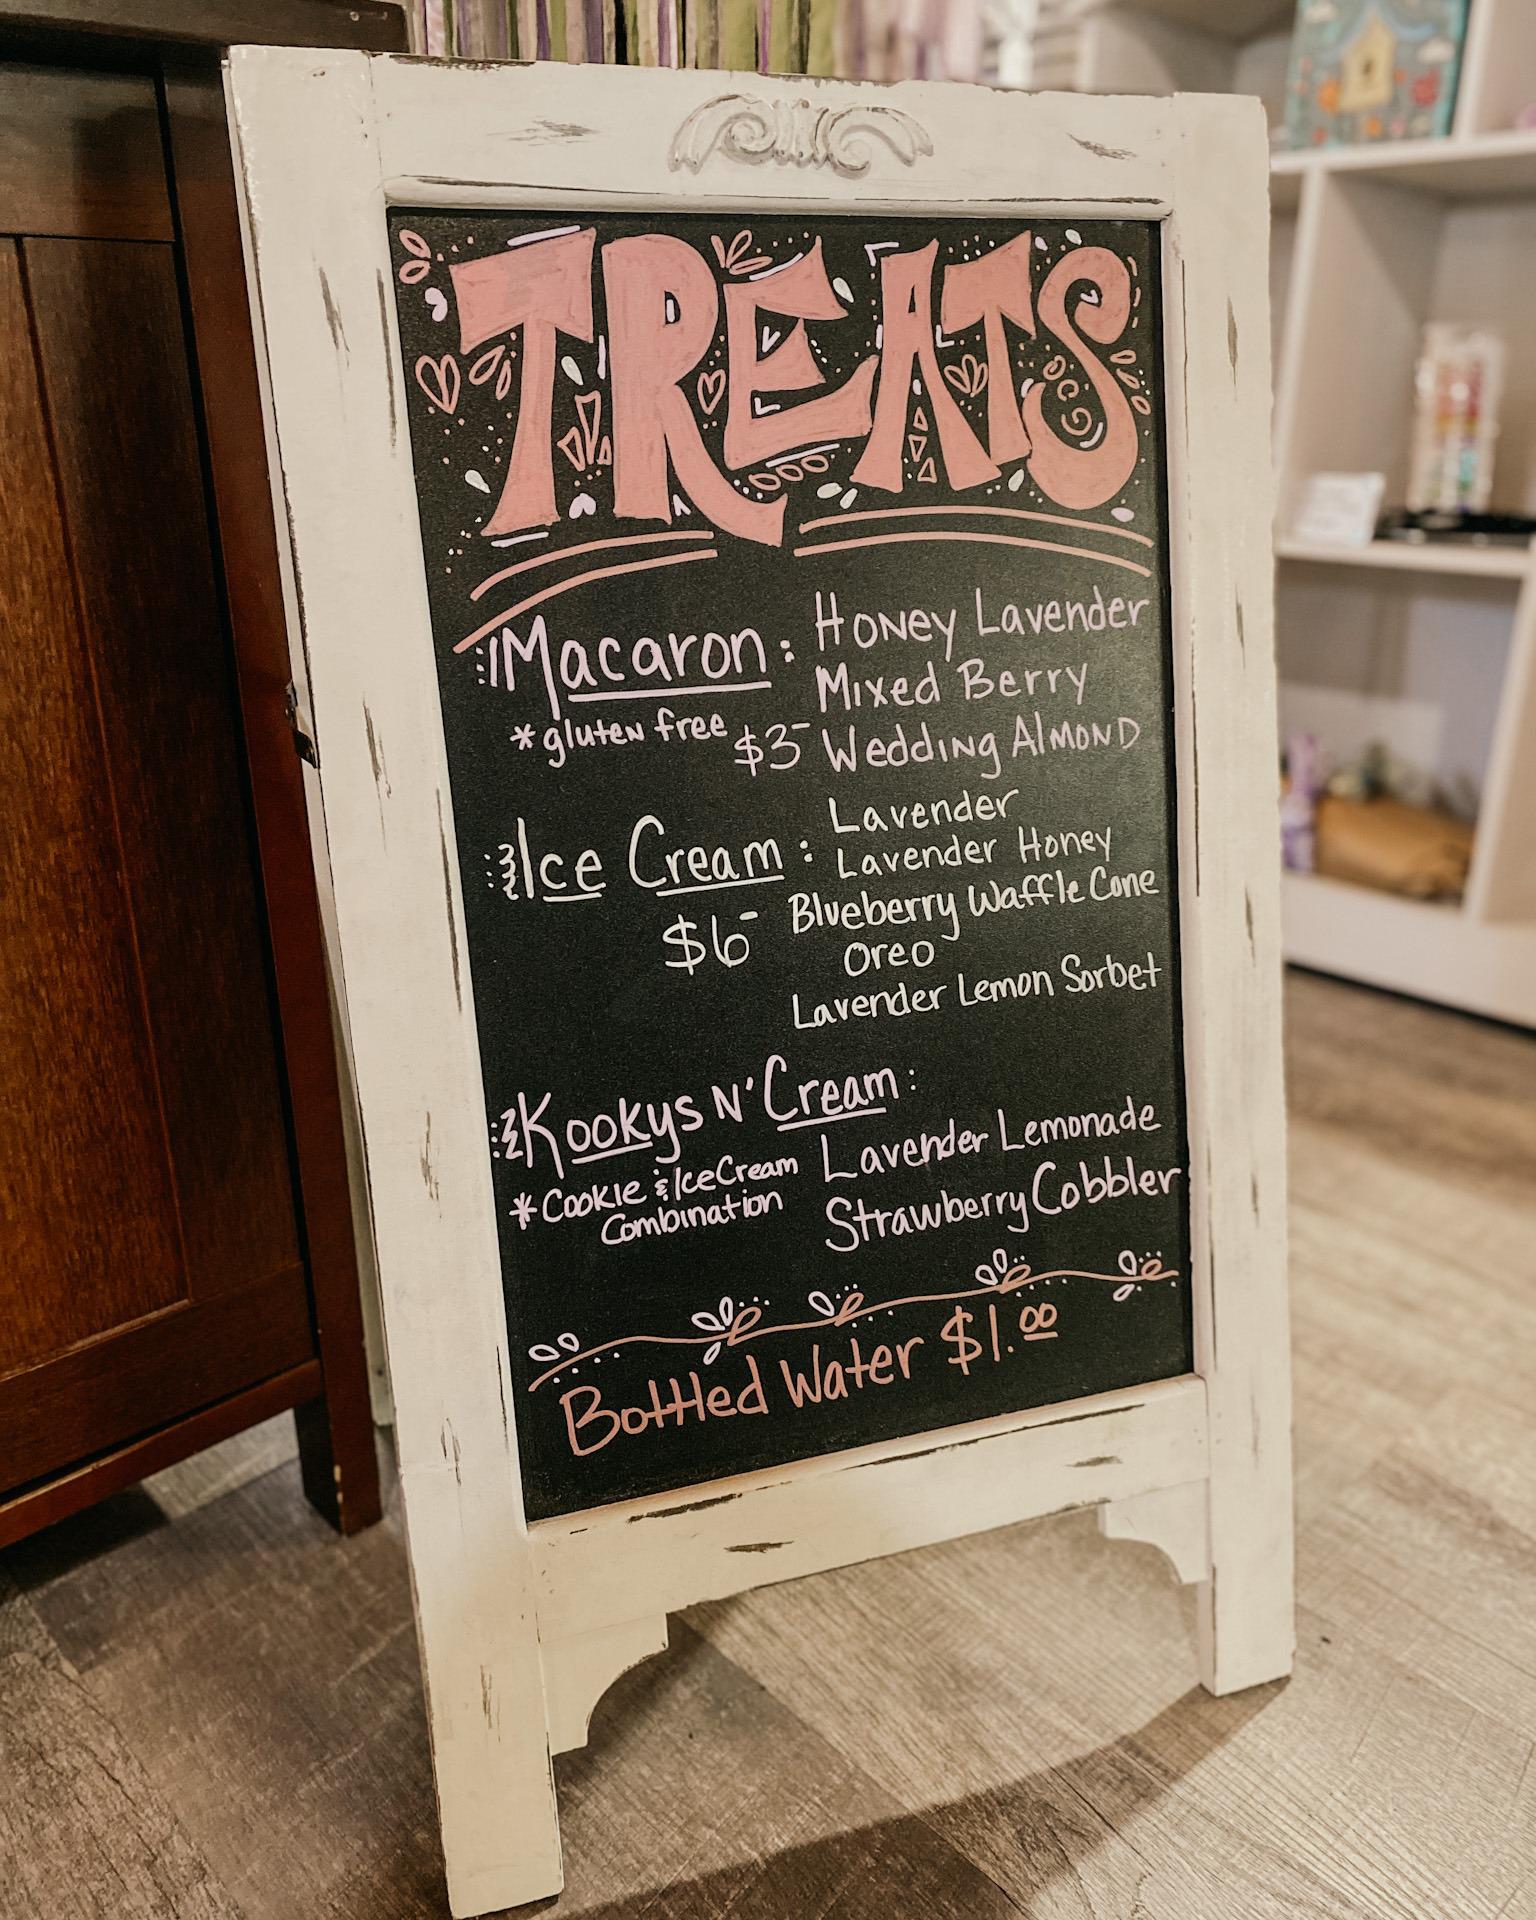 TREATS
Macaron: Honey Lavender
Mixed Berry
*gluten free $3- Wedding Almond
Ice Cream: Lavender
Lavender Honey
$6- Blueberry Waffle Cone
Oreo
Lavender Lemon Sorbet
Kookys N' Cream:
Lavender Lemonade
*Cookie & Ice Cream
Combination
Strawberry Cobbler
Bottled Water $1.00